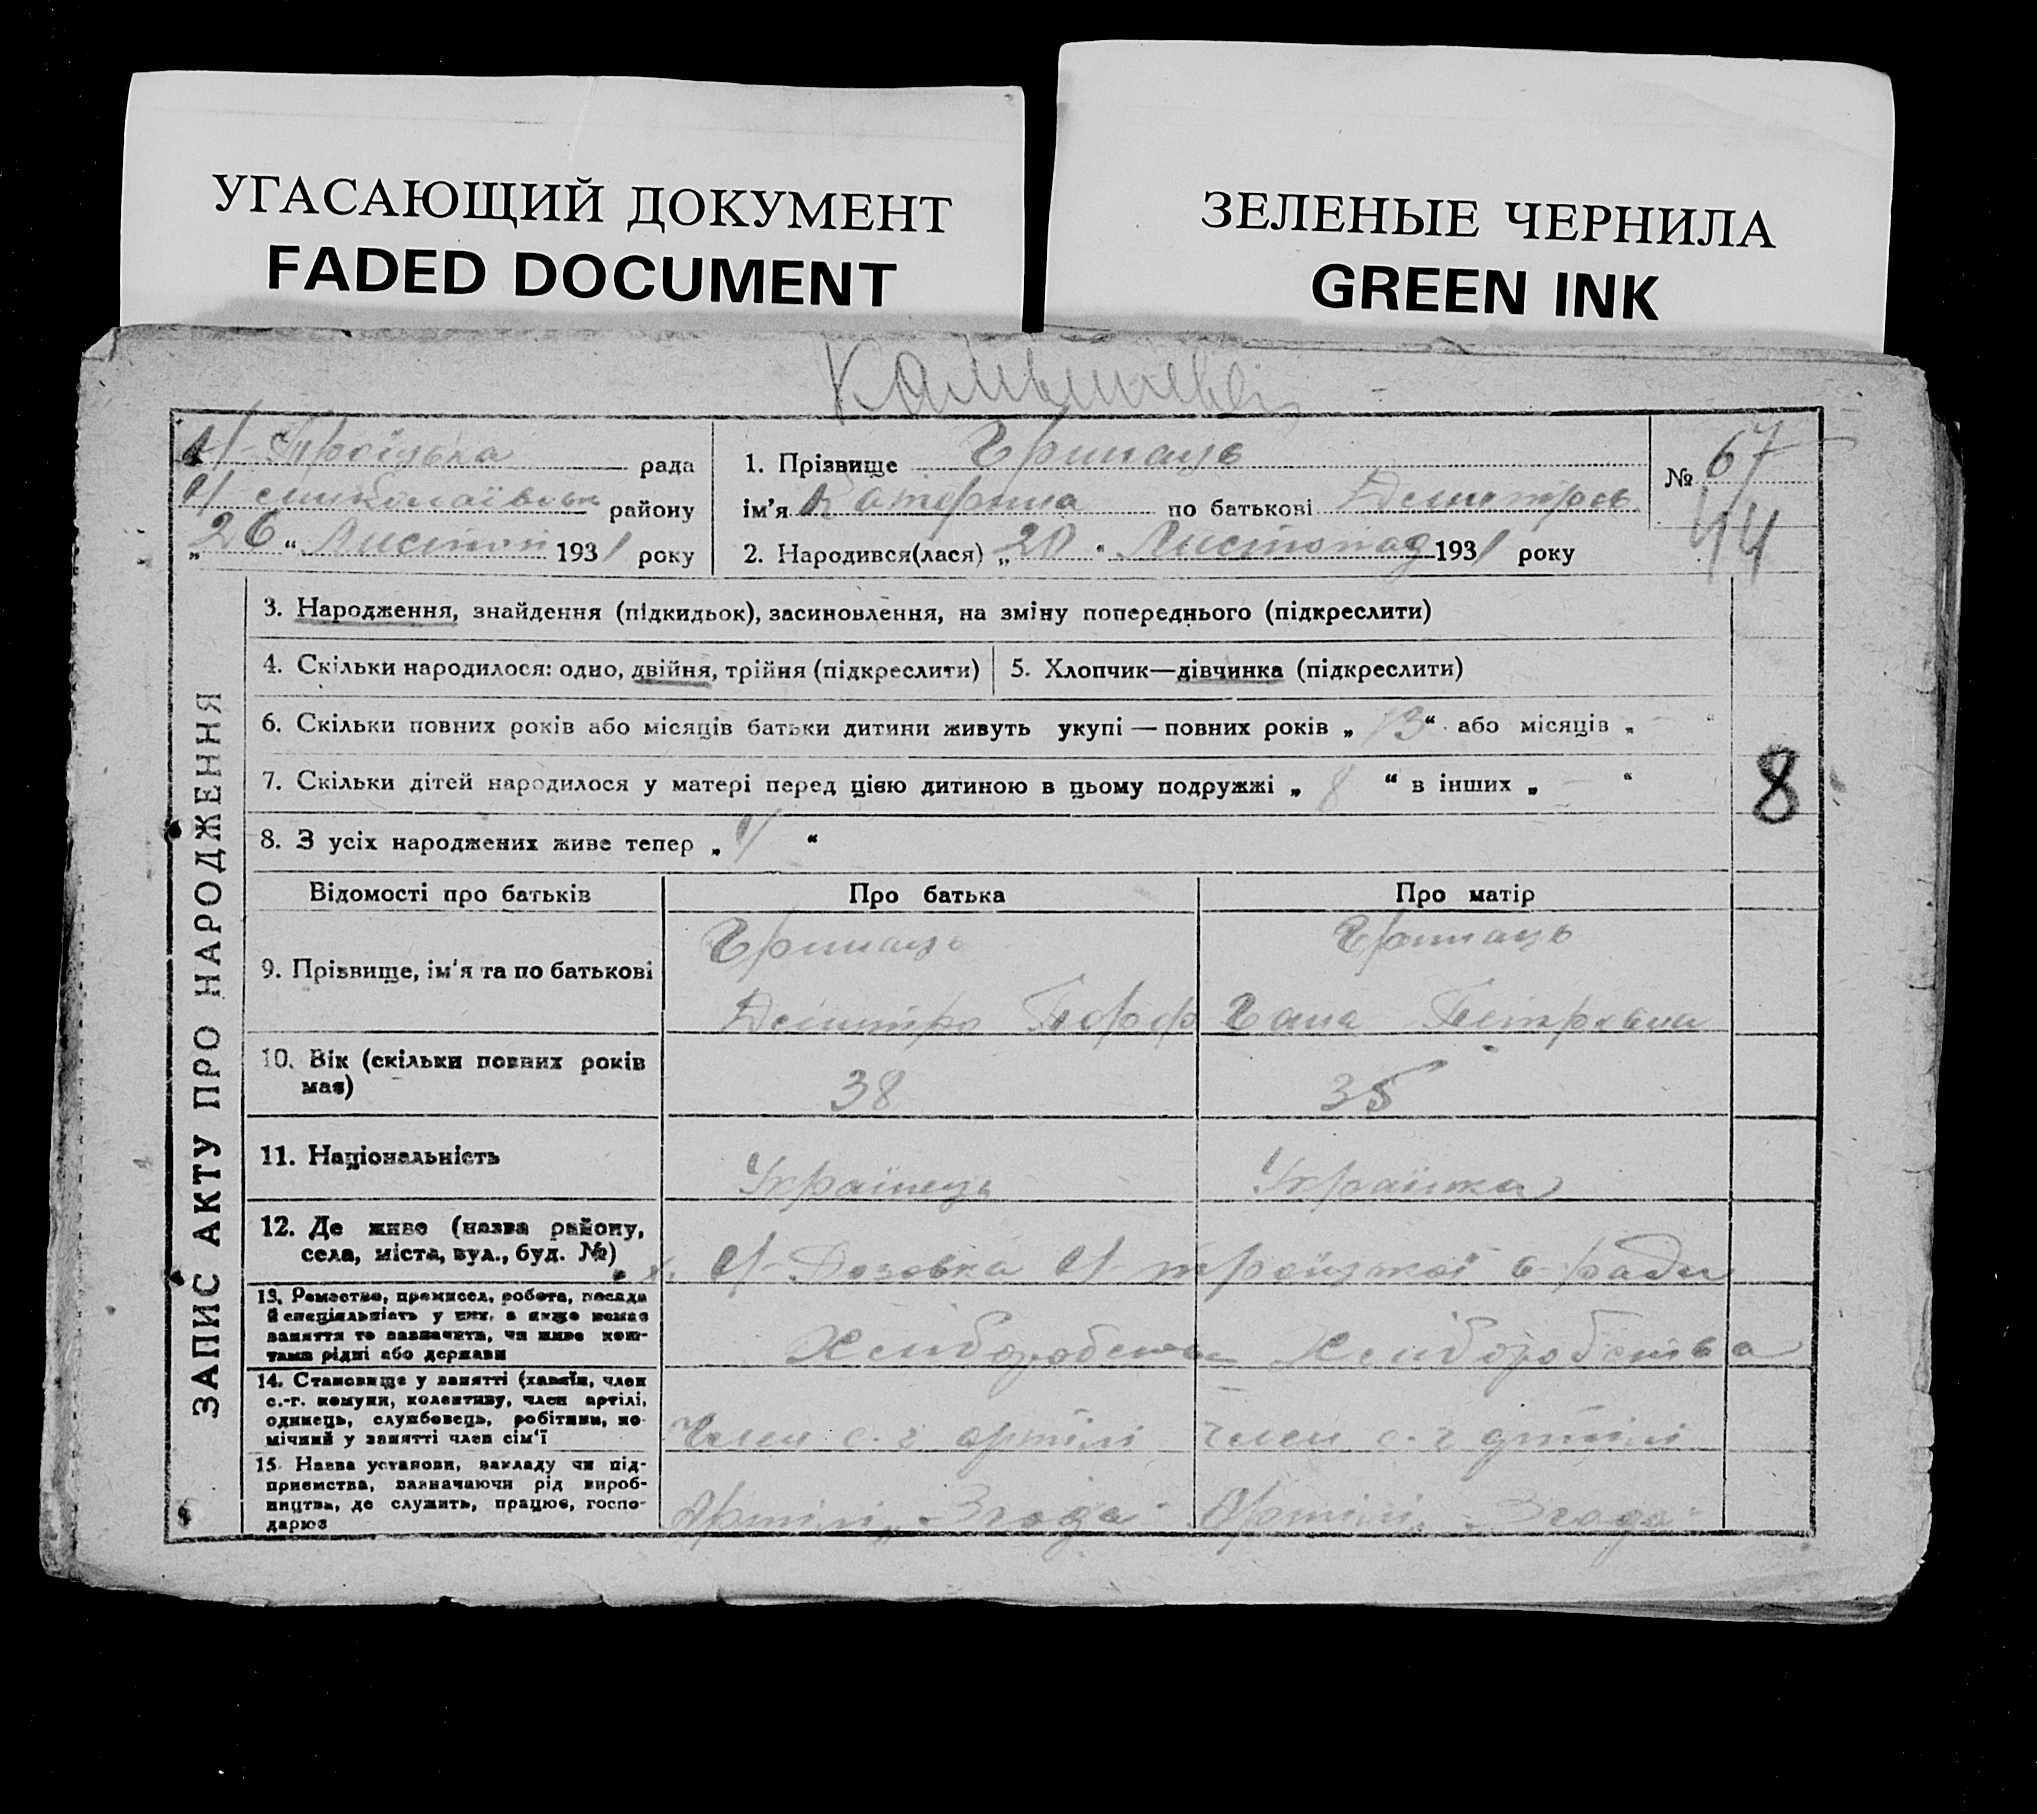 УГАСАЮЩИЙ ДОКУМЕНТ
FADED DOCUMENT
ЗЕЛЕНЫЕ ЧЕРНИЛА
GREEN INK
Н-Троїцька рада
Н миколаївськ району
„26“ Листоп 1931 року
1. Прізвище Гринаць
ім'я Катерина по батькові Демитров
2. Народився(лася) „20“ Листопад 1931 року
№ 67
44
ЗАПИС АКТУ ПРО НАРОДЖЕННЯ
3. Народження, знайдення (підкидьок), засиновлення, на зміну попереднього (підкреслити)
4. Скільки народилося: одно, двійня, трійня (підкреслити)
5. Хлопчик—дівчинка (підкреслити)
6. Скільки повних років або місяців батьки дитини живуть укупі — повних років „13“ або місяців „—“
7. Скільки дітей народилося у матері перед цією дитиною в цьому подружжі „8“ в інших „—“
8
8. З усіх народжених живе тепер „ “
Відомості про батьків
Про батька
Про матір
9. Прізвище, ім'я та по батькові
Гринаць
Демитро
Гринаць
Ганa Петровна
10. Вік (скільки повних років має)
38
35
11. Національність
Українець
Українка
12. Де живе (назва району,
села, міста, вул., буд. №)
х. Н- Н-троїцької с-ради
13. Ремество, промисел, робота, посада
й спеціяльність у них, а якщо немає
заняття то зазначити, чи живе кош-
тами рідні або держави
Хліборобство
Хліборобства
14. Становище у занятті (хазяїн, член
с.-г. комуни, колективу, член артілі,
одинець, службовець, робітник, по-
мічний у занятті член сім'ї
Член с.-г артілі
Член с.-г артілі
15. Назва установи, закладу чи під-
приємства, зазначаючи рід вироб-
ництва, де служить, працює, госпо-
дарює
Артілі „Згода“
Артілі „Згода“